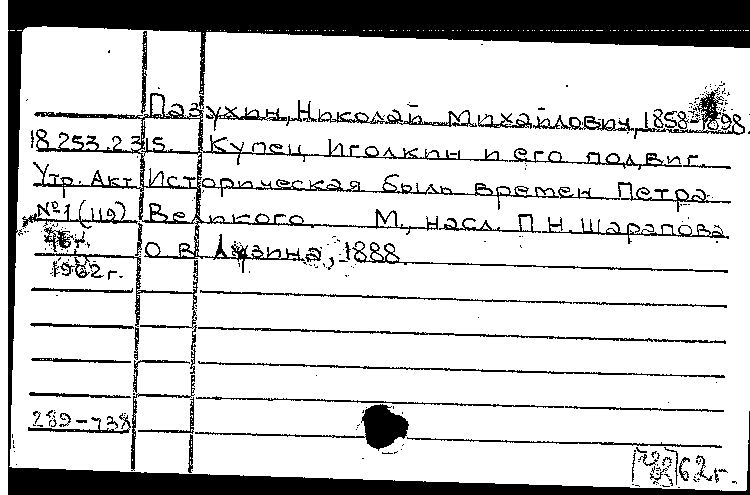 Пазухин, Николай Михайлович, 1858-1898.
18.253.2.315. Купец Иголкин и его подвиг.
Утр. Акт Историческая быль времен Петра
№1 (119) Великого. М., насл. П.Н. Шарапова
о в Лузина, 1888.
1962 г.
289-738
62 г.